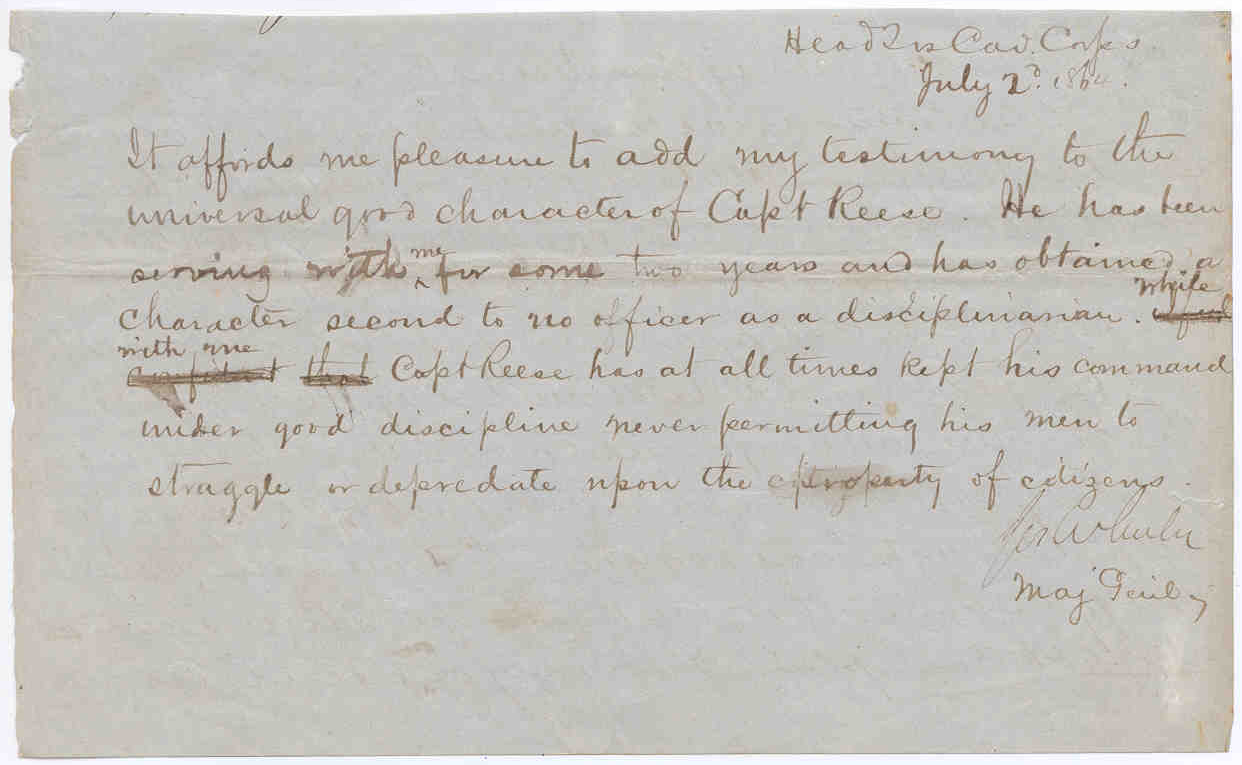 Head Qrs Cav. Corps.
July 2d. 1864.
It affords me pleasure to add my testimony to the
universal good character of Capt Reese. He has been
serving with me for some two years and has obtained a
character second to no officer as a disciplinarian. while
with me that Capt Reese has at all times kept his command
under good discipline never permitting his men to
straggle or depredate upon the property of citizens.
Jos Wheeler
Maj Genl